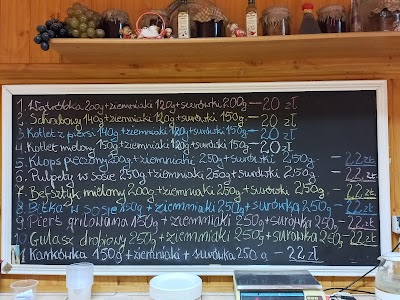 1. Wątróbka 200g+ziemniaki 120g+surówki 200g — 20 zł
2. Schabowy 140g+ziemniaki 120g+surówki 150g — 20 zł
3. Kotlet z piersi 140g+ziemniaki 120g+surówki 150g — 20 zł
4. Kotlet mielony 150g+ziemniaki 120g+surówki 150g — 20 zł
5. Klops pieczony 250g+ziemniaki 250g+surówki 250g. — 22 zł
6. Pulpety w sosie 250g+ziemniaki 250g+surówki 250g — 22 zł
7. Befsztyk mielony 200g+ziemniaki 250g+surówki 250g — 22 zł
8. Bitka w sosie 150g+ziemniaki 250g+surówka 250g — 22 zł
9. Pierś grilowana 150g+ziemniaki 250g+surówka 250g — 22 zł
10 Gulasz drobiowy 250g+ziemniaki 250g+surówka 250g — 22 zł
Karkówka 150g+ziemniaki+surówka 250g — 22 zł